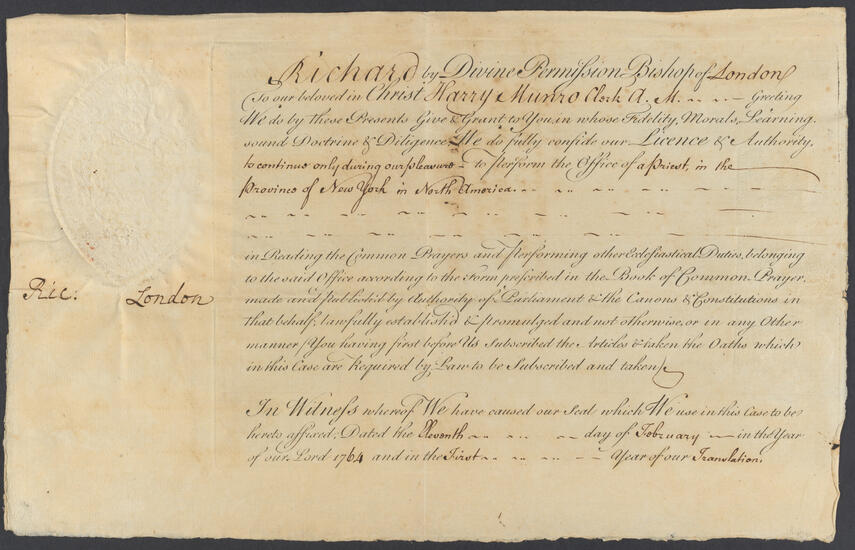 Richard by Divine Permission Bishop of London
To our beloved in Christ Harry Munro Clerk A. M. Greeting
We do by these Presents Give & Grant to You, in whose Fidelity, Morals, Learning,
sound Doctrine & Diligence, We do fully confide our Licence & Authority,
to continue only during our pleasure to perform the Office of a Priest, in the
Province of New York in North America.
in Reading the Common Prayers and performing other Ecclesiastical Duties, belonging
to the said Office according to the Form prescribed in the Book of Common Prayer,
made and published by Authority of Parliament & the Canons & Constitutions in
that behalf, lawfully establish'd & promulged and not otherwise, or in any Other
manner (You having first before Us Subscribed the Articles & taken the Oaths which
in this Case are Required by Law to be Subscribed and taken)
Ric: London
In Witness whereof We have caused our Seal which We use in this Case to be
hereto affixed; Dated the Eleventh day of February in the Year
of our Lord 1764 and in the First Year of our Translation.